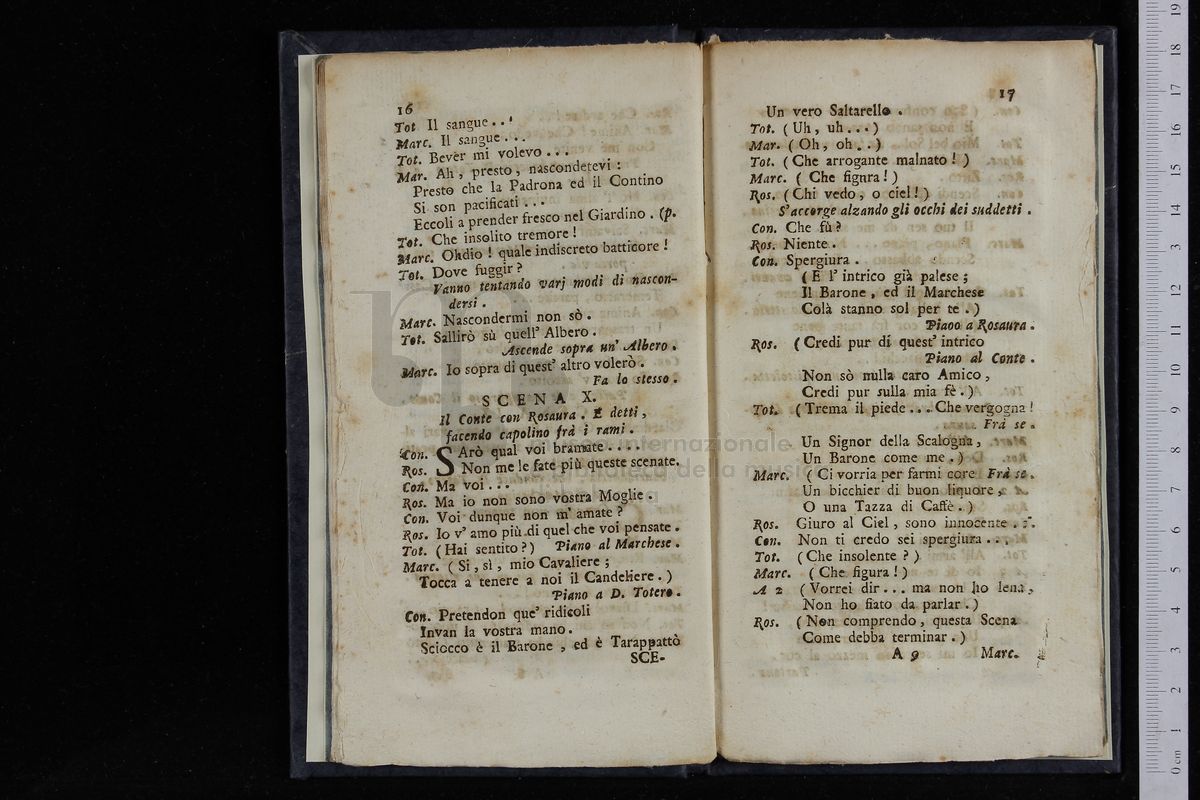 16
Tot. Il sangue...
Marc. Il sangue...
Tot. Bever mi volevo...
Mar. Ah, presto, nascondetevi:
Presto che la Padrona ed il Contino
Si son pacificati...
Eccoli a prender fresco nel Giardino. (p.
Tot. Che insolito tremore!
Marc. Ohdio! quale indiscreto batticore!
Tot. Dove fuggir?
Vanno tentando varj modi di nascon-
dersi.
Marc. Nascondermi non sò.
Tot. Sallirò sù quell' Albero.
Ascende sopra un' Albero.
Marc. Io sopra di quest' altro volerò.
Fa lo stesso.
SCENA X.
Il Conte con Rosaura. E detti,
facendo capolino frà i rami.
Con. SArò qual voi bramate....
Ros. Non me le fate più queste scenate.
Con. Ma voi...
Ros. Ma io non sono vostra Moglie.
Con. Voi dunque non m' amate?
Ros. Io v' amo più di quel che voi pensate.
Tot. (Hai sentito?) Piano al Marchese.
Marc. (Si, sì, mio Cavaliere;
Tocca a tenere a noi il Candeliere.)
Piano a D. Totero.
Con. Pretendon que' ridicoli
Invan la vostra mano.
Sciocco è il Barone, ed è Tarappattò
SCE-
17
Un vero Saltarello.
Tot. (Uh, uh...)
Mar. (Oh, oh..)
Tot. (Che arrogante malnato!)
Marc. (Che figura!)
Ros. (Chi vedo, o ciel!)
S'accorge alzando gli occhi dei suddetti.
Con. Che fù?
Ros. Niente.
Con. Spergiura.
(E l' intrico già palese;
Il Barone, ed il Marchese
Colà stanno sol per te.)
Piaoo a Rosaura.
Ros. (Credi pur di quest' intrico
Piano al Conte.
Non sò nulla caro Amico,
Credi pur sulla mia fè.)
Tot. (Trema il piede... Che vergogna!
Frà se.
Un Signor della Scalogna,
Un Barone come me.)
Marc. (Ci vorria per farmi core Frà se.
Un bicchier di buon liquore,
O una Tazza di Caffè.)
Ros. Giuro al Ciel, sono innocente...
Con. Non ti credo sei spergiura...
Tot. (Che insolente?)
Marc. (Che figura!)
A 2 (Vorrei dir... ma non ho lena,
Non ho fiato da parlar.)
Ros. (Non comprendo, questa Scena
Come debba terminar.)
A 9 Marc.
museo internazionale
biblioteca della musica